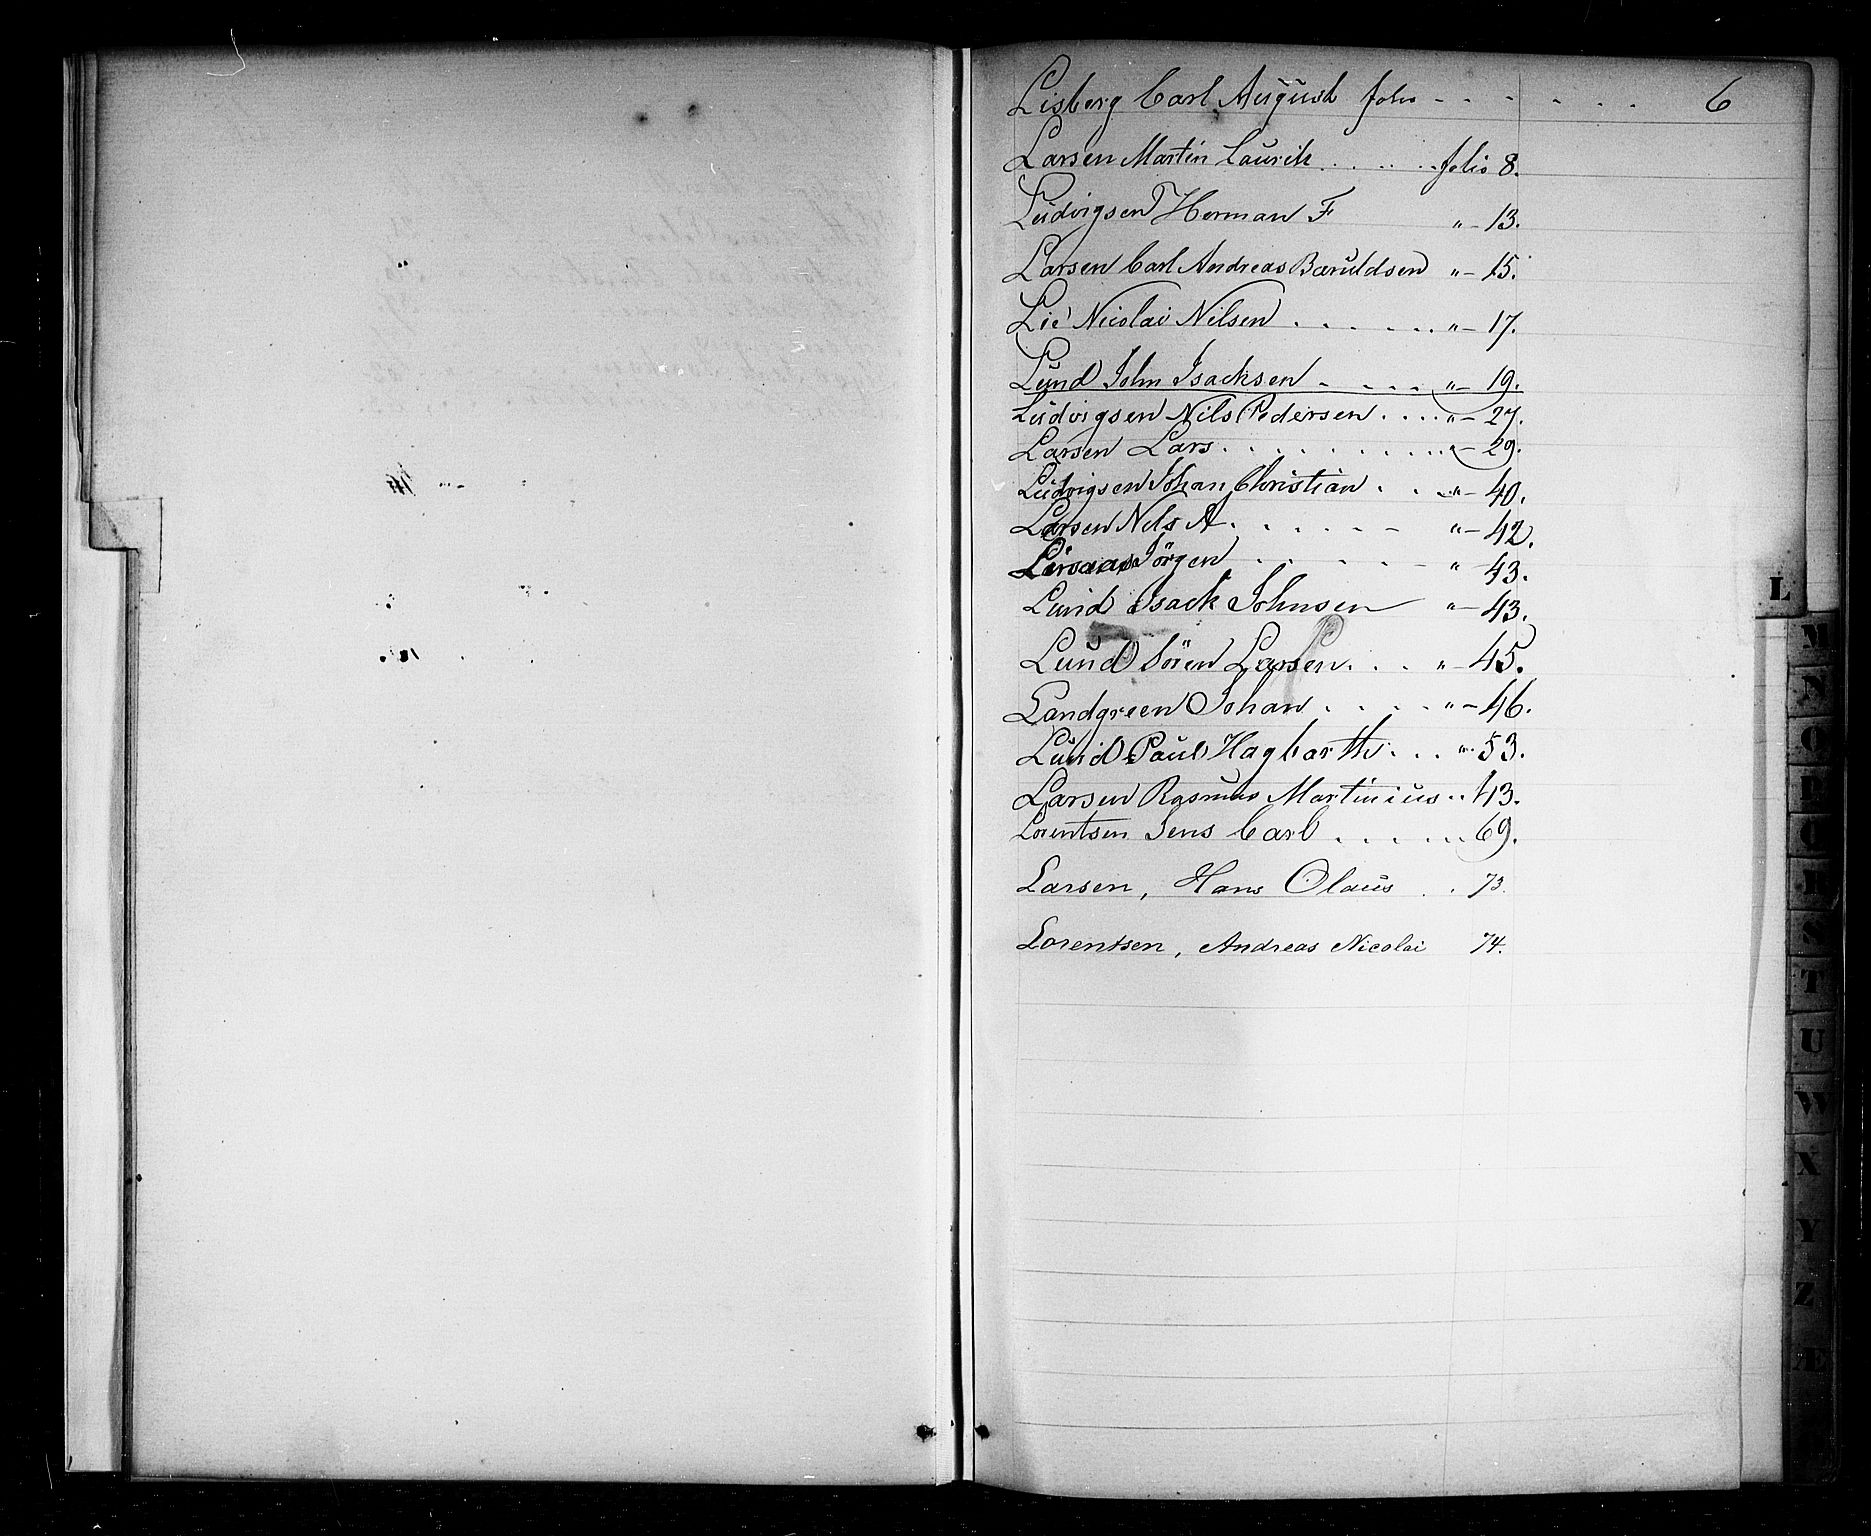 Lisberg Carl August folio - - - - - - 6
Larsen Martin Laurits . . . . . folio 8.
Ludvigsen Herman F " – 13.
Larsen Carl Andreas Baruldsen " – 15.
Lie Nicolai Nilsen . . . . . . " – 17.
Lund John Isacksen . . . . . " – 19.
Ludvigsen Nils Pedersen . . . . " – 27.
Larsen Lars . . . . . . . . . . " – 29.
Ludvigsen Johan Christian . . . " – 40.
Larsen Nils A . . . . . - " – 42.
Jörgen . . . . . - " – 43.
Lund Isack Johnsen " – 43.
Lund Sören Larsen . . . " – 45.
Landgreen Johan . . . . . " – 46.
Lund Paul Hagbarth . . . " . 53.
Larsen Rasmus Martinius . . 43.
Lorentsen Jens Carl . . . . . . 69.
Larsen, Hans Olaus . . 73.
Lorentsen, Andreas Nicolai 74.
L
M
N
O
P
Q
R
S
T
U
W
X
Y
Z
Æ